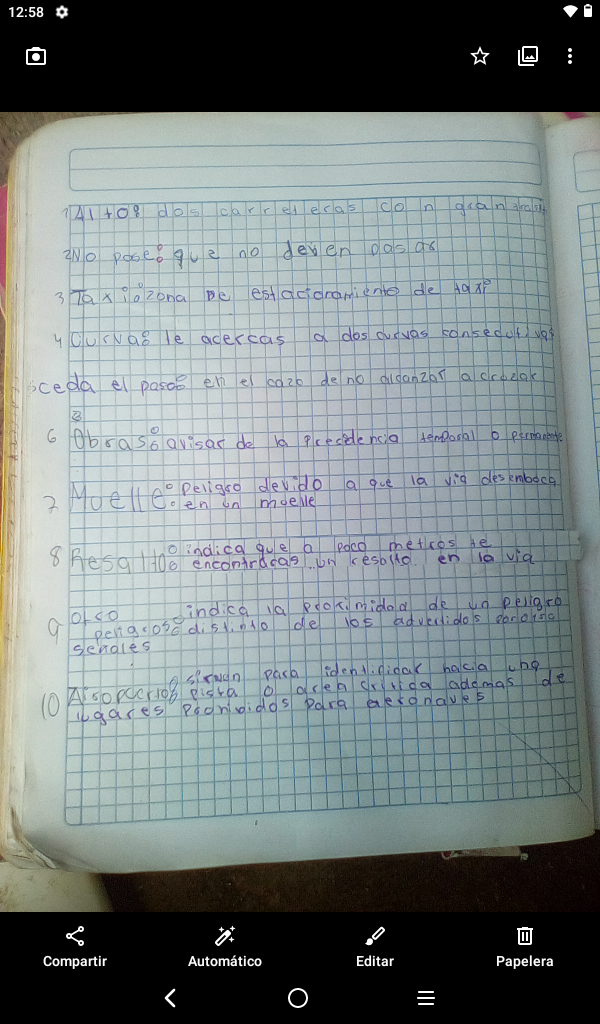 12:58
1 Alto: dos carreteras con gran
2 No pase: que no deven pasar
3 Taxi: zona De estacionamiento de taxi
4 Curvas te acercas a dos curvas consecutivas
ceda el paso: en el cazo de no alcanzar a crozar
6 Obras: avisar de la precedencia temporal o permanente
7 Muelle: Peligro devido a que la via desemboca
en un muelle
8 Resalto: indica que a poco metros te
encontracas un resalto en la via
9 otro indica la proximidad de un peligro
peligroso: distinto de los advertidos por otra
señales
10 sirven para identificar hacia una
pista o area critica ademas de
lugares prohividos para aeronaves
Compartir
Automático
Editar
Papelera